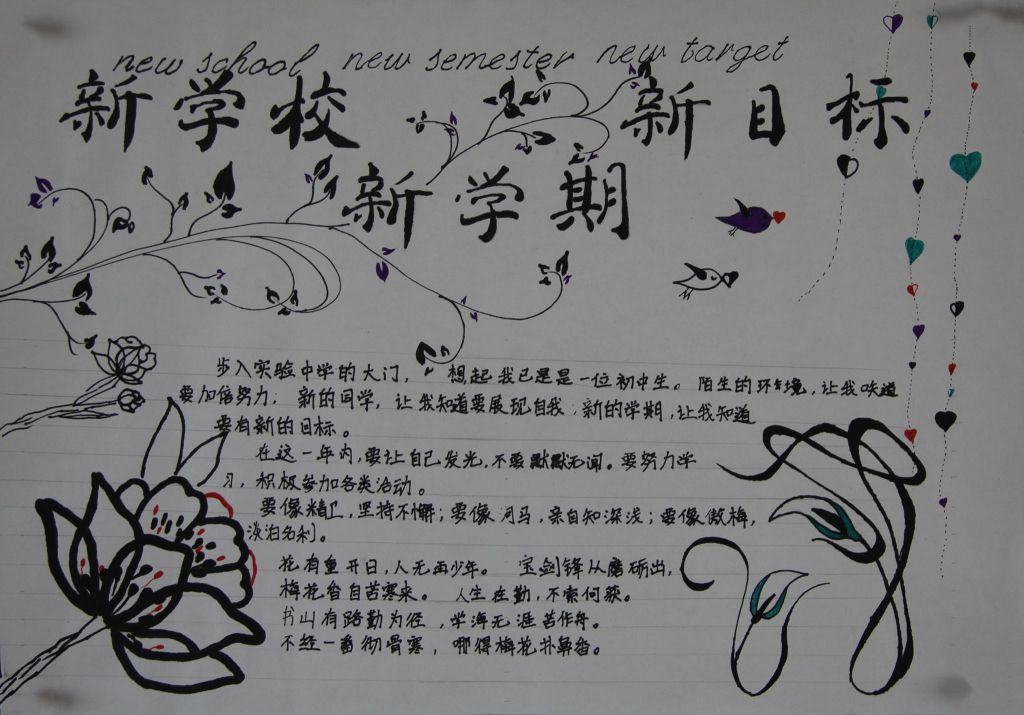 new school new semester new target
新学校 新目标
新学期
步入实验中学的大门， 想起我已是是一位初中生。陌生的环境，让我味道
要加倍努力；新的同学，让我知道要展现自我；新的学期，让我知道
要有新的目标。
在这一年内，要让自己发光，不要默默无闻。要努力学
习，积极参加各类活动。
要像精卫，坚持不懈；要像河马，亲自知深浅；要像傲梅，
淡泊名利。
花有重开日，人无再少年。 宝剑锋从磨砺出，
梅花香自苦寒来。 人生在勤，不索何获。
书山有路勤为径，学海无涯苦作舟。
不经一番彻骨寒，哪得梅花扑鼻香。